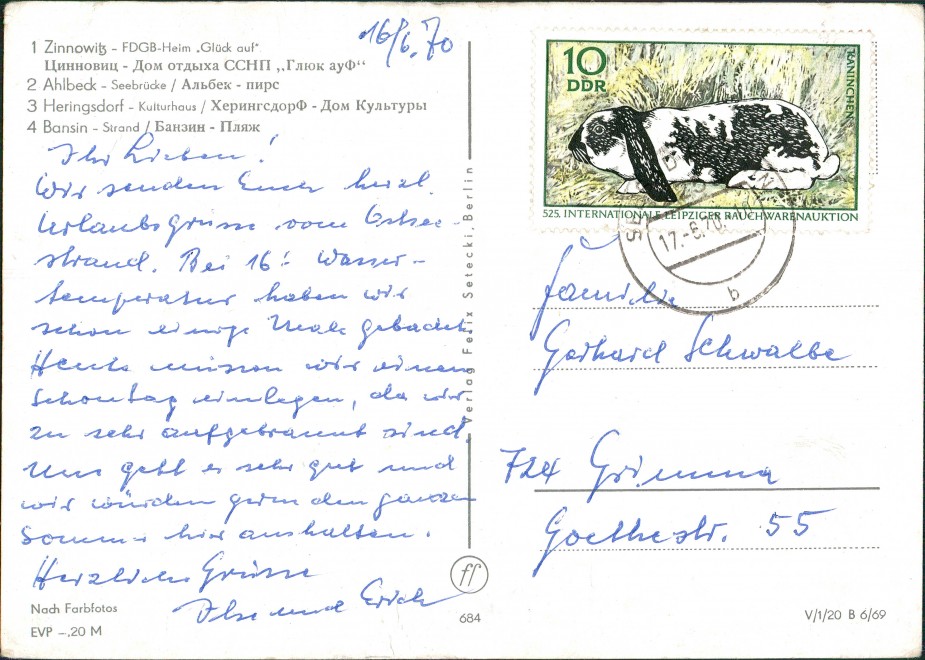 1 Zinnowitz - FDGB-Heim „Glück auf"
Цинновиц - Дом отдыха ССНП „Глюк ауФ"
2 Ahlbeck - Seebrücke / Альбек - пирс
3 Heringsdorf - Kulturhaus / ХерингсдорФ - Дом Культуры
4 Bansin - Strand / Банзин - Пляж
16/6.70
Ihr Lieben!
Wir senden Euch herzl.
Urlaubsgrüsse vom Ostsee-
strand. Bei 16° Wasser-
temperatur haben wir
schon einige Male gebadet.
Heute müssen wir einen
Schontag einlegen, da wir
zu sehr aufgebrannt sind.
Uns geht es sehr gut und
wir würden gern den ganzen
Sommer hier aushalten.
Herzliche Grüsse
Ilse und Erich
Nach Farbfotos
EVP -,20 M
Verlag Felix Setecki, Berlin
ff
684
10
DDR
KANINCHEN
525. INTERNATIONALE LEIPZIGER RAUCHWARENAUKTION
17.-6.70
b
Familie
Gerhard Schwalbe
724 Grimma
Goethestr. 55
V/1/20 B 6/69